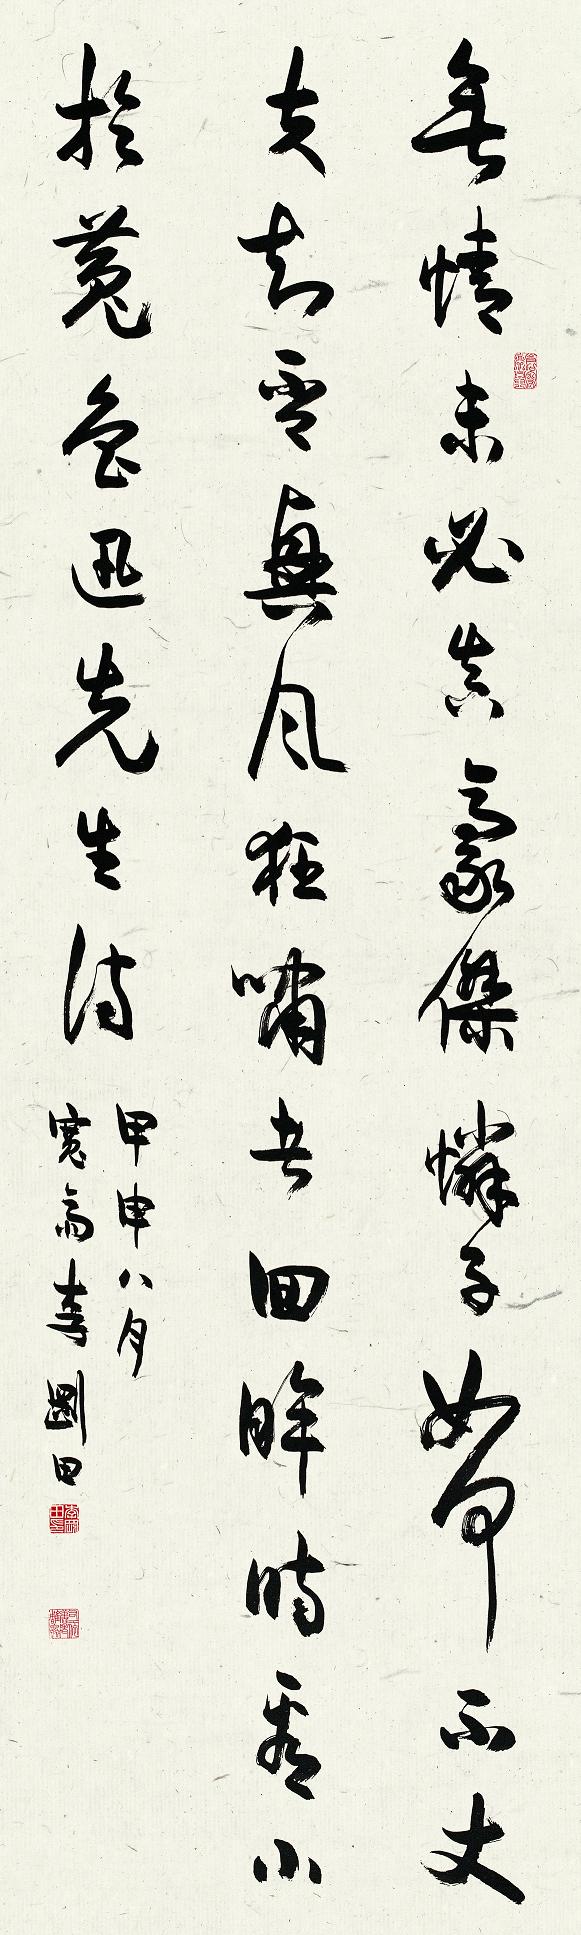 無情未必真豪傑憐子如何不丈
夫知否興風狂嘯者回眸時看小
於菟魯迅先生詩
甲申八月
寬齋李剛田